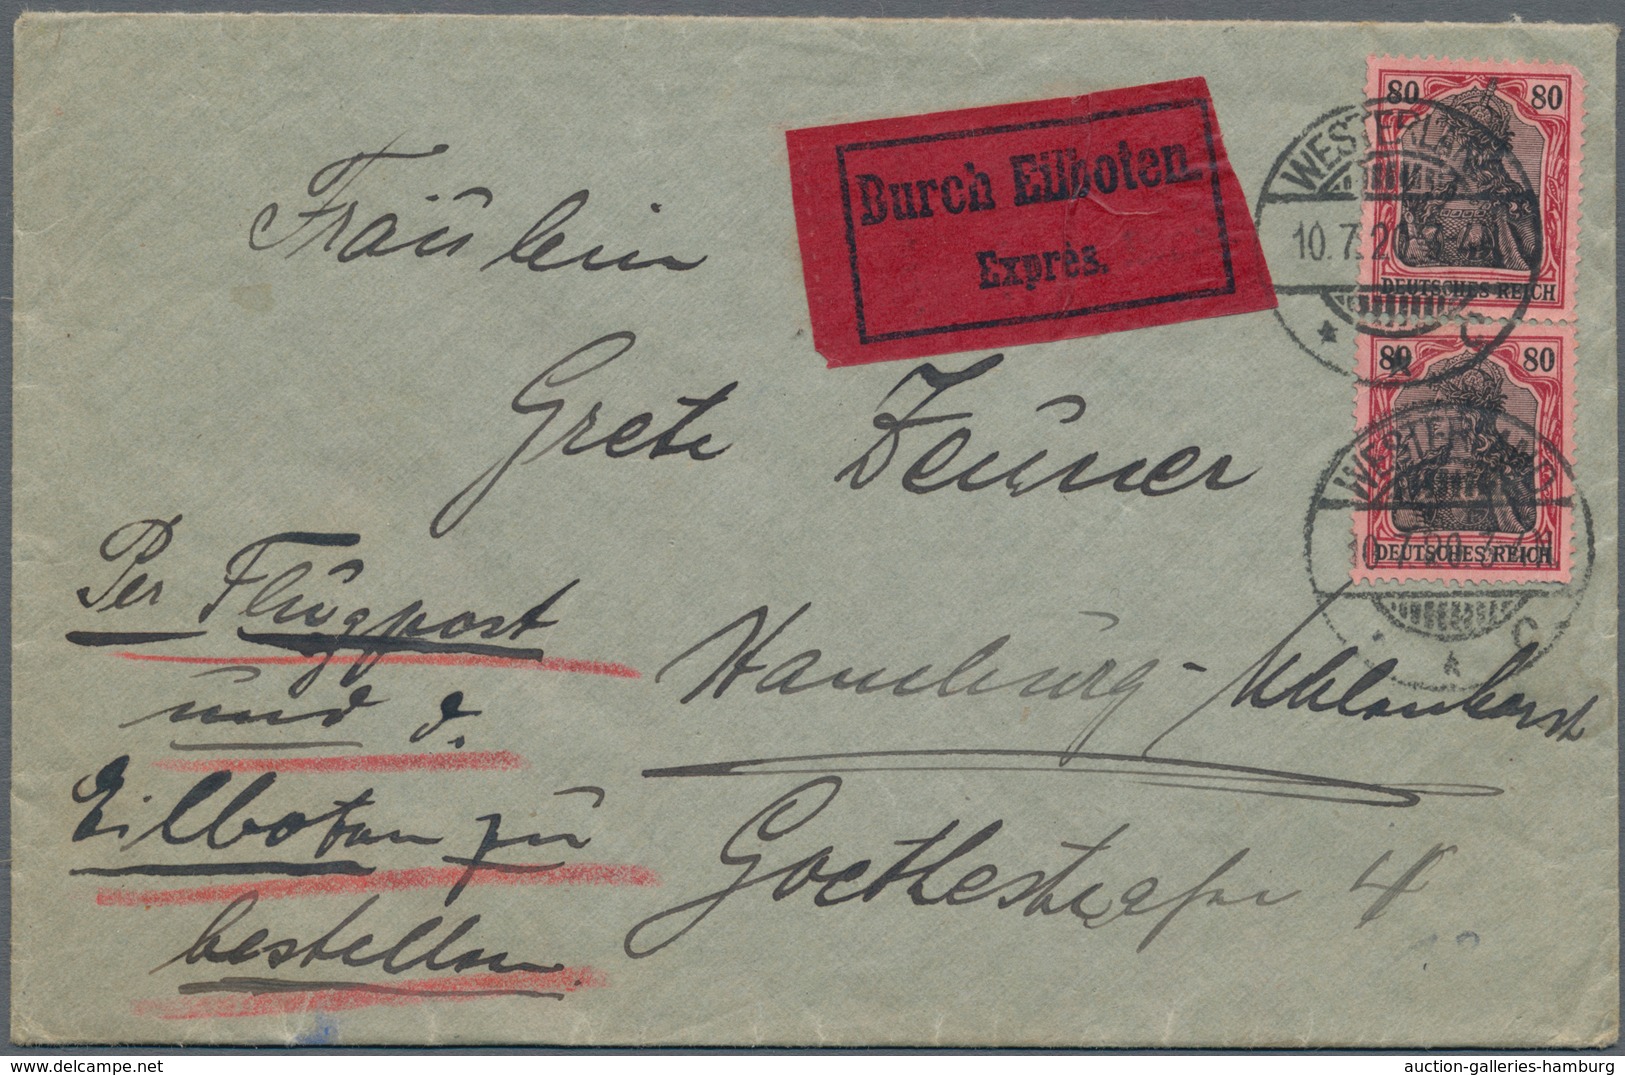 80 80
WESTERLAND
10.7.20 3-4N
DEUTSCHES REICH
C
Durch Eilboten.
Exprès.
80 80
WESTERLAND
10.7.20 3-4N
DEUTSCHES REICH
C
Fräulein
Grete Zeuner
Per Flugpost
und d.
Eilboten zu
bestellen.
Hamburg-Uhlenhorst
Goethestraße 4
auction-galleries-hamburg